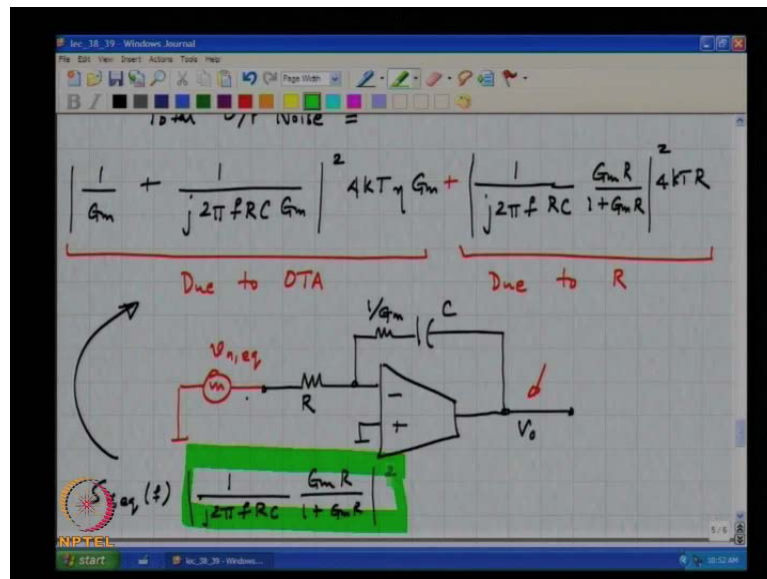 lec_38_39 - Windows Journal
File Edit View Insert Actions Tools Help
Page Width
B I
Total O/P Noise =
| 1/Gm + 1/(j 2π f RC Gm) |² 4kTη Gm + | 1/(j 2π f RC) GmR/(1+GmR) |² 4kTR
Due to OTA Due to R
1/Gm C
vn,eq
R
-
+
Vo
eq (f) | 1/(j 2π f RC) GmR/(1+GmR) |²
NPTEL
5/6
start lec_38_39 - Windows... 10:52 AM